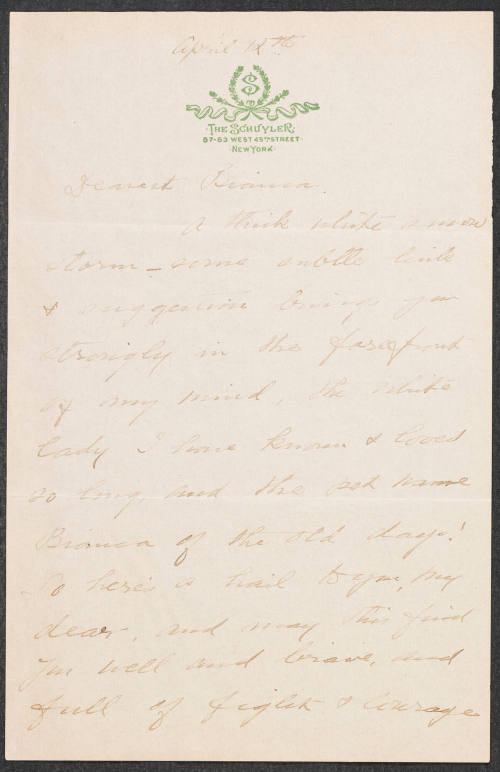 April 12th
S
THE SCHUYLER
57-63 WEST 45TH STREET
NEW YORK
Dearest Bianca.
A thick white snow
storm - some subtle link
& suggestion brings you
strongly in the forefront
of my mind, the white
lady I have known & loved
so long, and the pet name
Bianca of the old days!
So here's a hail to you, my
dear, and may this find
you well and brave, and
full of fight & courage